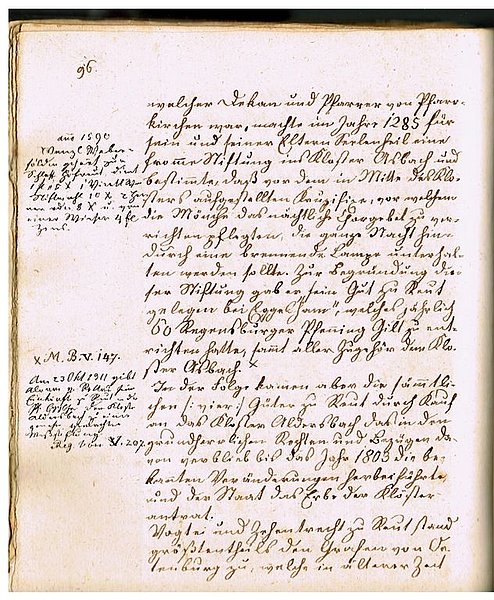 96.
welcher Dekan und Pfarrer von Pfarr-
kirchen war, machte im Jahre 1285 für
sein und seiner Eltern Seelenheil eine
fromme Stiftung ins Kloster Asbach und
bestimmte, daß vor dem in Mitte des Klo-
sters aufgestellten Kruzifixe, vor welchem
die Mönche das nächtliche Chorgebet zu ver-
richten pflegten, die ganze Nacht hin-
durch eine brennende Lampe unterhal-
ten werden sollte. Zur Begründung die-
ser Stiftung gab er sein Gut zu Reut
gelegen bei Eggel
welches jährlich
60 Regensburger Pfening Gilt zu ent-
richten hatte, sammt aller Zugehör dem Klo-
ster Asbach. x
In der Folge kamen aber die sämmtli-
chen (: vier :) Güter zu Reut durch Kauf
an das Kloster Aldersbach das in den
grundherrlichen Rechten und Bezügen da-
von verblieb bis das Jahr 1803 die be-
kannten Veränderungen herbeiführte,
und der Staat das Erbe der Klöster
antrat.
Vogtei und Zehentrecht zu Reut stand
größtentheils den Grafen von Or-
tenburg zu, welche in älterer Zeit
ano 1590
x M. B. V. 147.
Reg. boic. V. 207.